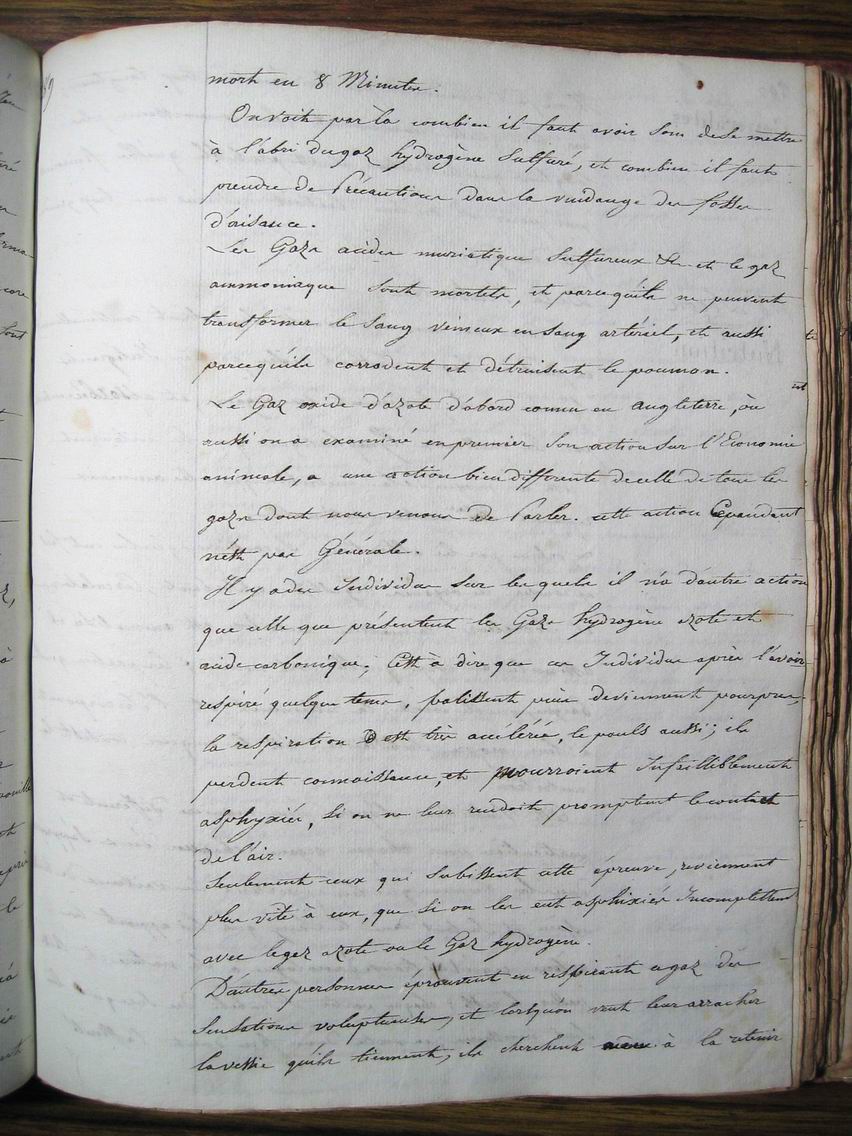 mort en 8 Minutes.
On voit par la combien il faut avoir soin de se mettre
à l'abri du gaz hydrogène Sulfuré, et combien il faut
prendre de Précautions dans la vuidange des fosses
d'aisance.
Les Gazs acides muriatique Sulfureux &c et le gaz
ammoniaque sont mortels, et parcequ'ils ne peuvent
transformer le Sang véineux en Sang artériel, et aussi
parcequ'ils corrodent et détruisent le poumon.
Le Gaz oxide d'azote d'abord connu en angleterre, ou
aussi on a examiné en premier Son action Sur l'Economie
animale, a une action bien differente de celle de tous les
gazs dont nous venons de Parler. cette action Cependant
n'est pas Générale.
Il y a des Individus Sur lesquels il n'a d'autre action
que celle que présentent les Gazs hydrogène azote et
acide carbonique; C'est à dire que ces Individus après l'avoir
respiré quelque tems, palissent puis deviennent pourpres,
la respiration est très accélérée, le pouls aussi; ils
perdent connoissance, et mourroient Infailliblement
asphyxiés, Si on ne leur rendoit promptent le contact
de l'air.
Seulement ceux qui Subissent cette épreuve, reviennent
plus vite à eux, que si on les eut asphixiés Incomplettent
avec le gaz azote ou le Gaz hydrogène.
D'autres personnes éprouvent en respirant ce gaz des
Sensations voluptueuses, et lorsqu'on veut leur arracher
la vessie qu'ils tiennent, ils cherchent à la retenir